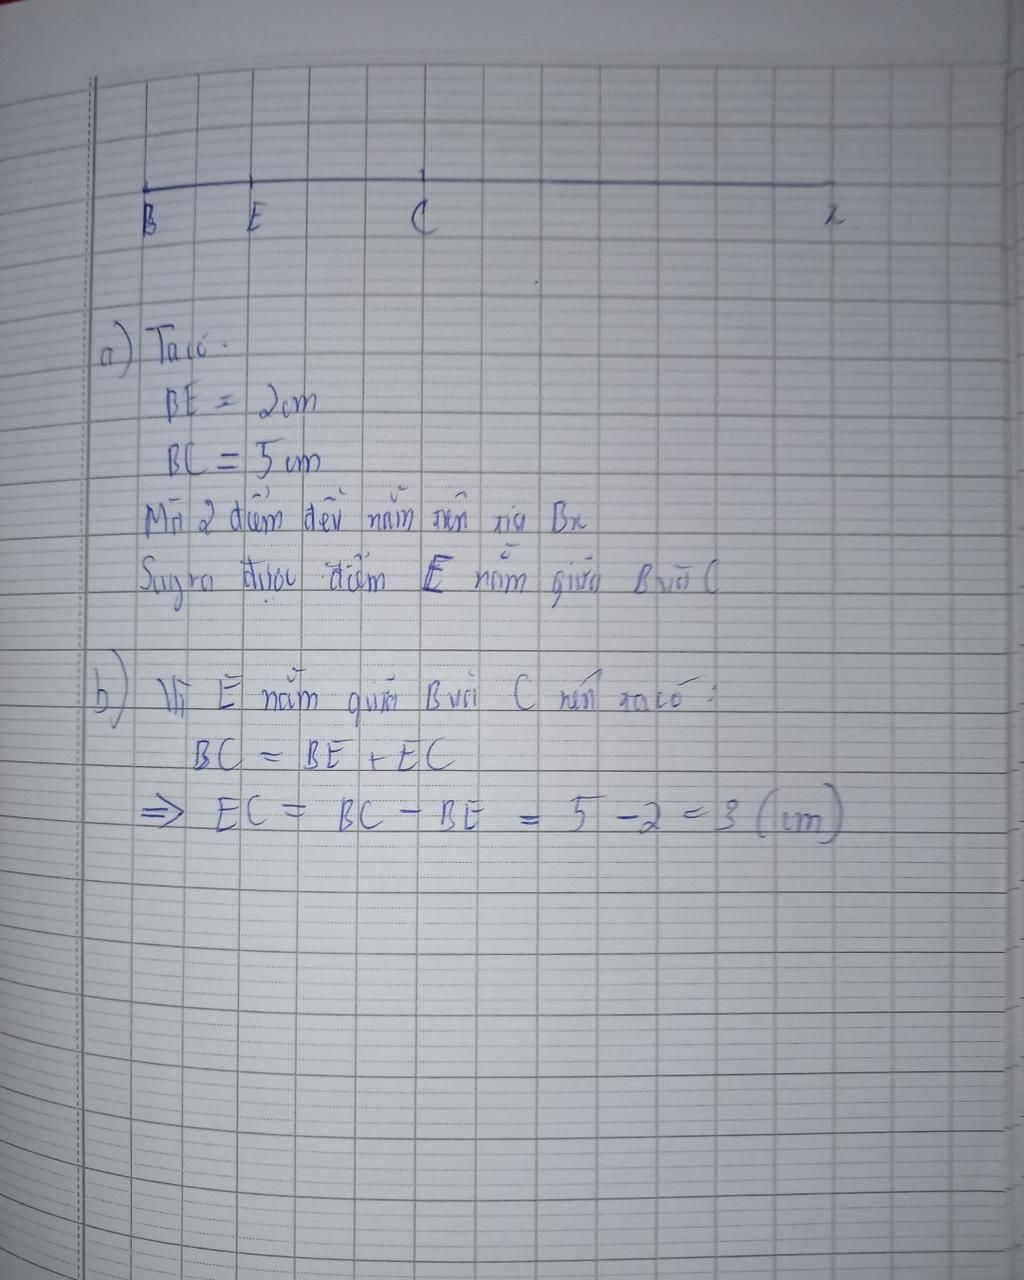 B E C x
a) Ta có:
BE = 2cm
BC = 5cm
Mà 2 điểm đều nằm trên tia Bx
Suy ra được điểm E nằm giữa B và C
b) Vì E nằm giữa B và C nên ta có:
BC = BE + EC
=> EC = BC - BE = 5 - 2 = 3 (cm)